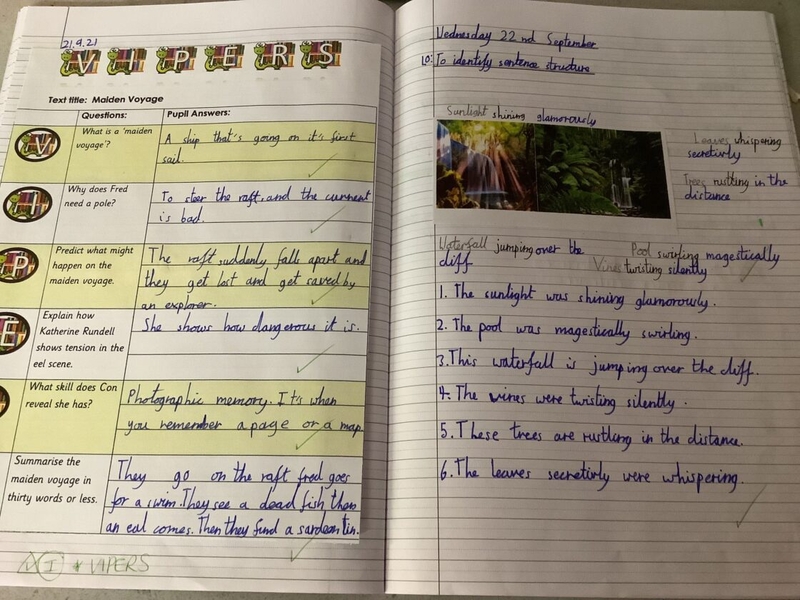 21.9.21
VIPERS
Text title: Maiden Voyage
Questions:
Pupil Answers:
V
What is a 'maiden
voyage'?
A ship that's going on it's first
sail.
I
Why does Fred
need a pole?
To steer the raft, and the current
is bad.
P
Predict what might
happen on the
maiden voyage.
The raft suddenly falls apart and
they get lost and get saved by
an explorer.
E
Explain how
Katherine Rundell
shows tension in the
eel scene.
She shows how dangerous it is.
What skill does Con
reveal she has?
Photographic memory. It's when
you remember a page or a map.
Summarise the
maiden voyage in
thirty words or less.
They go on the raft fred goes
for a swim. They see a dead fish then
an eal comes. Then they find a sardean tin.
I
VIPERS
Wednesday 22nd September
LO: To identify sentence structure
Sunlight shining glamorously
Leaves whispering
secretivly
Trees rustling in the
distance
Waterfall jumping over the
cliff
Pool swirling magestically
Vines twisting silently
1. The sunlight was shining glamorously.
2. The pool was magestically swirling.
3. This waterfall is jumping over the cliff.
4. The vines were twisting silently.
5. These trees are rustling in the distance.
6. The leaves secretivly were whispering.